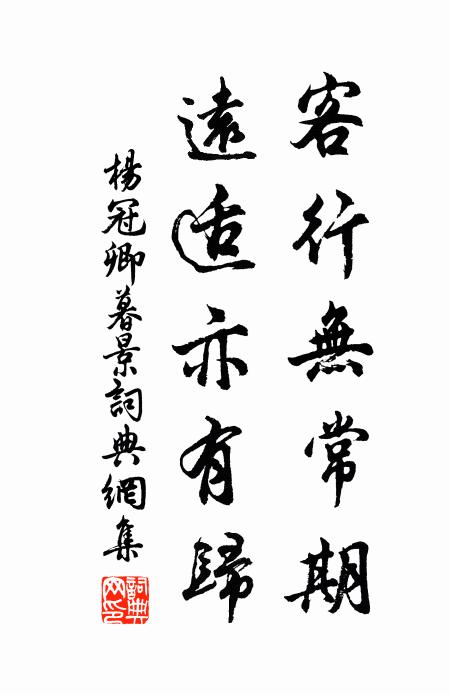 客行無常期
遠适亦有歸
楊冠卿暮景詞典網集
詞典網印